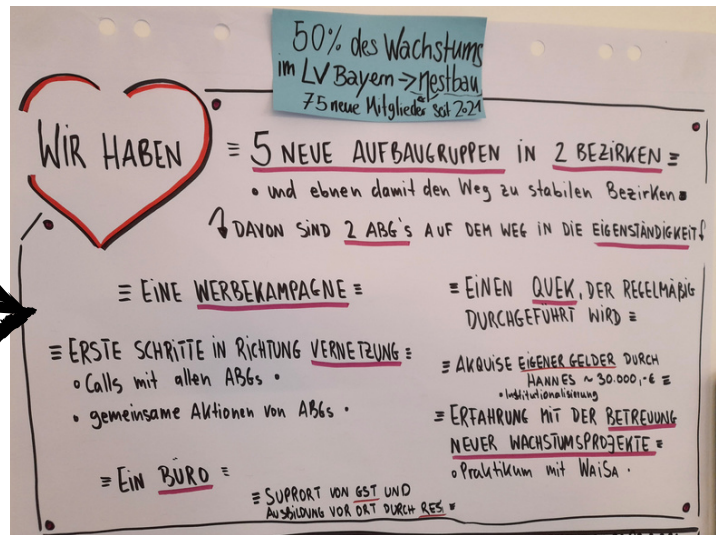 50% des Wachstums
im LV Bayern → Nestbau
75 neue Mitglieder seit 2021
WIR HABEN
= 5 NEUE AUFBAUGRUPPEN IN 2 BEZIRKEN =
• und ebnen damit den Weg zu stabilen Bezirken •
DAVON SIND 2 ABG's AUF DEM WEG IN DIE EIGENSTÄNDIGKEIT
≡ EINE WERBEKAMPAGNE ≡
≡ ERSTE SCHRITTE IN RICHTUNG VERNETZUNG ≡
• Calls mit allen ABGs •
• gemeinsame Aktionen von ABGs •
≡ EIN BÜRO ≡
≡ SUPPORT VON GST UND
AUSBILDUNG VOR ORT DURCH RES. ≡
≡ EINEN QUEK, DER REGELMÄßIG
DURCHGEFÜHRT WIRD ≡
≡ AKQUISE EIGENER GELDER DURCH
HANNES ~ 30.000,-€ ≡
• Institutionalisierung
≡ ERFAHRUNG MIT DER BETREUUNG
NEUER WACHSTUMSPROJEKTE ≡
• Praktikum mit WaiSA •